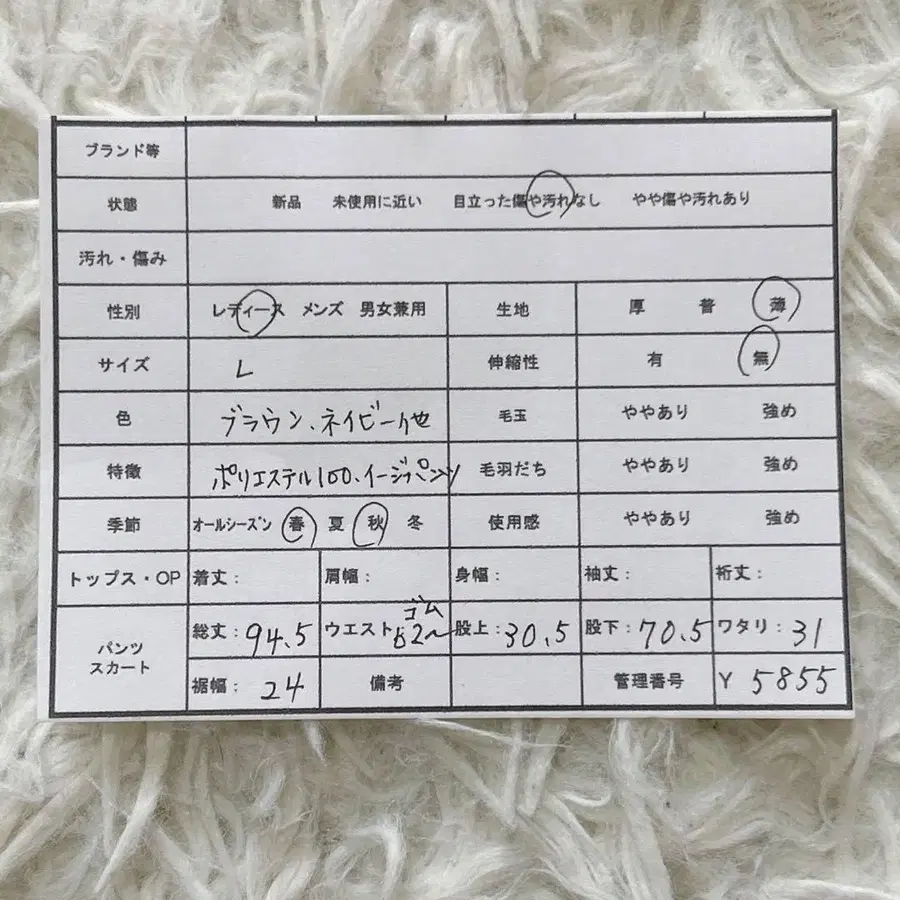 ブランド等
状態 新品 未使用に近い 目立った傷や汚れなし やや傷や汚れあり
汚れ・傷み
性別 レディース メンズ 男女兼用 生地 厚 普 薄
サイズ L 伸縮性 有 無
色 ブラウン、ネイビー他 毛玉 ややあり 強め
特徴 ポリエステル100、イージーパンツ 毛羽だち ややあり 強め
季節 オールシーズン 春 夏 秋 冬 使用感 ややあり 強め
トップス・OP 着丈: 肩幅: 身幅: 袖丈: 裄丈:
パンツ
スカート
総丈: 94.5 ウエスト: ゴム 股上: 30.5 股下: 70.5 ワタリ: 31
裾幅: 24 備考 管理番号 Y 5855